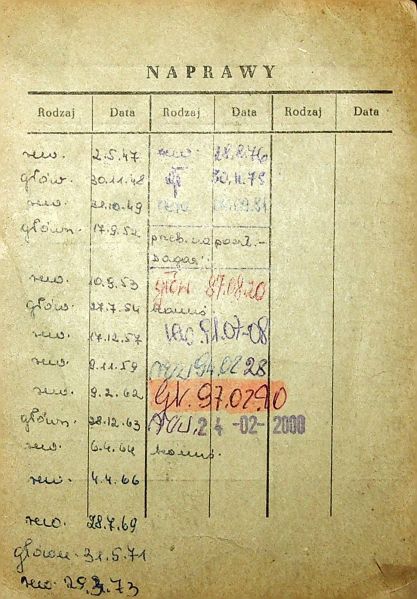 NAPRAWY
Rodzaj Data Rodzaj Data Rodzaj Data
rew. 2.5.47
główn. 30.11.48
rew. 29.10.49
główn. 17.9.52
rew. 10.9.53
główn. 27.7.54
rew. 17.12.57
rew. 9.11.59
rew. 9.2.62
główn. 28.12.63
rew. 6.4.64
rew. 4.4.66
rew. 28.7.69
główn. 31.5.71
rew. 73
rew. 28.8.76
30.11.78
rew.
głów 87.08.20
rew 91.07-08
94.02 28
Gł. 97.02.10
24 -02- 2000